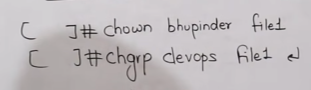 [ ]# chown bhupinder file1
[ ]# chgrp devops file1 ↵